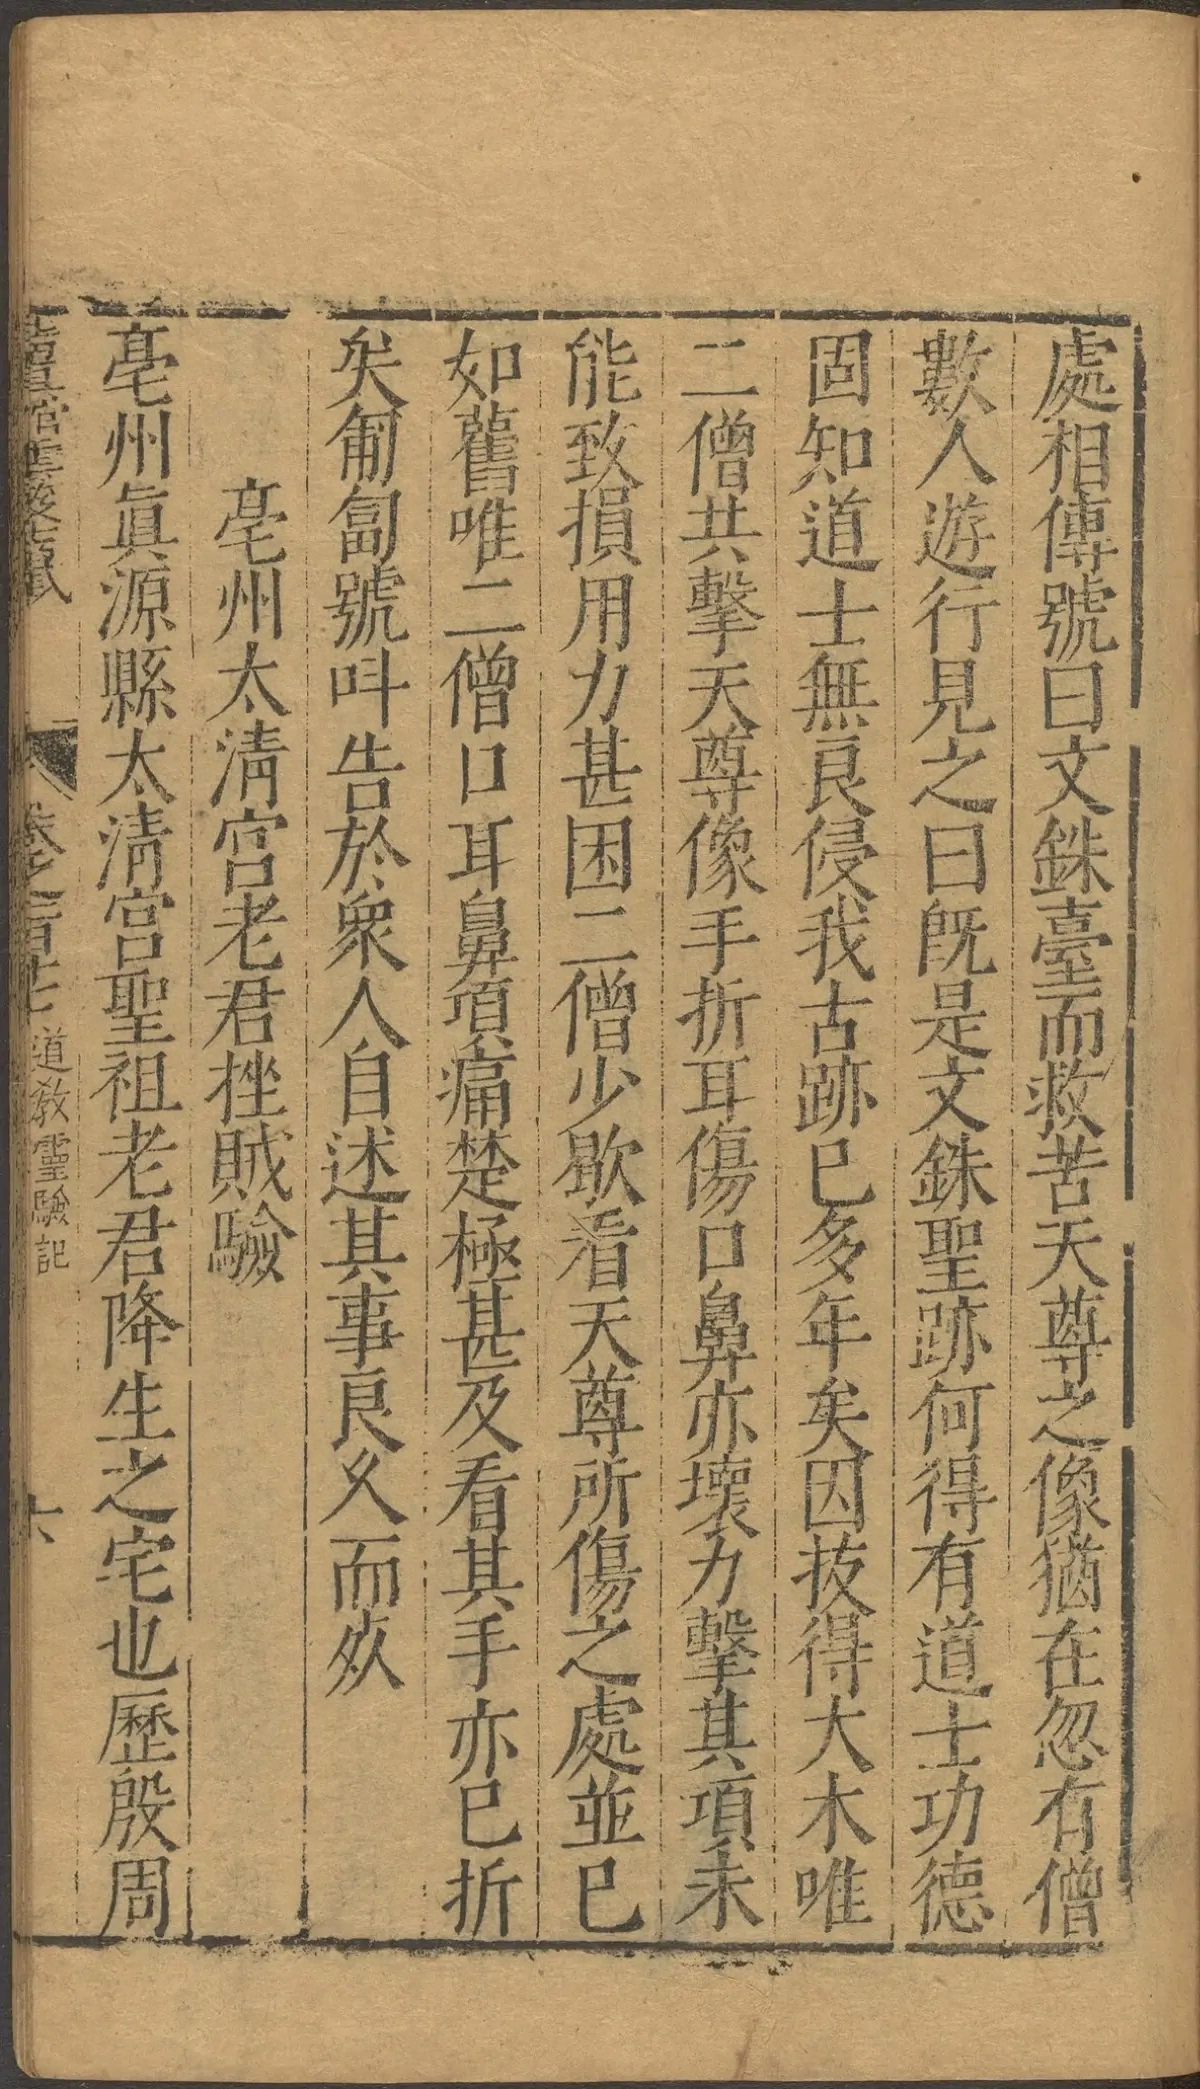 處相傳號曰文銖臺而救苦天尊之像猶在忽有僧
數人遊行見之曰旣是文銖聖跡何得有道士功德
固知道士無良侵我古跡已多年矣因拔得大木唯
二僧共擊天尊像手折耳傷口鼻亦壞力擊其項未
能致損用力甚困二僧少歇看天尊所傷之處並已
如舊唯二僧口耳鼻項痛楚極甚及看其手亦已折
矣匍匐號叫告於衆人自述其事良久而歿
亳州太淸宮老君挫賊驗
亳州眞源縣太淸宮聖祖老君降生之宅也歷殷周
道敎靈驗記
六